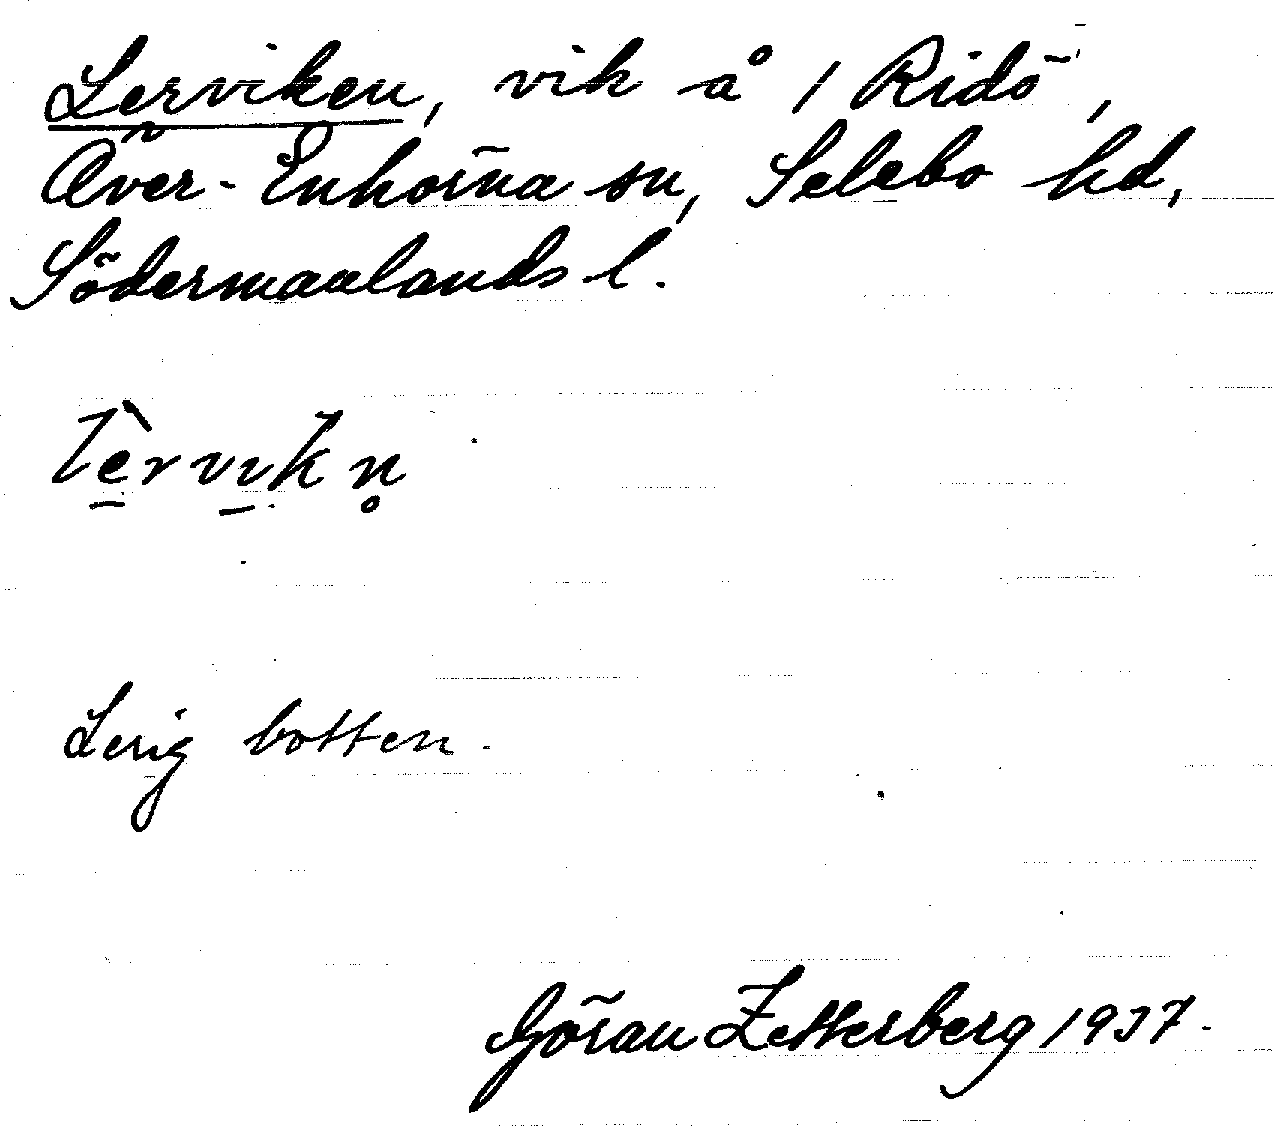 Lerviken, vik å 1 Ridö,
Över-Enhörna sn, Selebo hd,
Södermanlands l.
lèrvikn̥
Lerig botten.
Göran Zetterberg 1937.